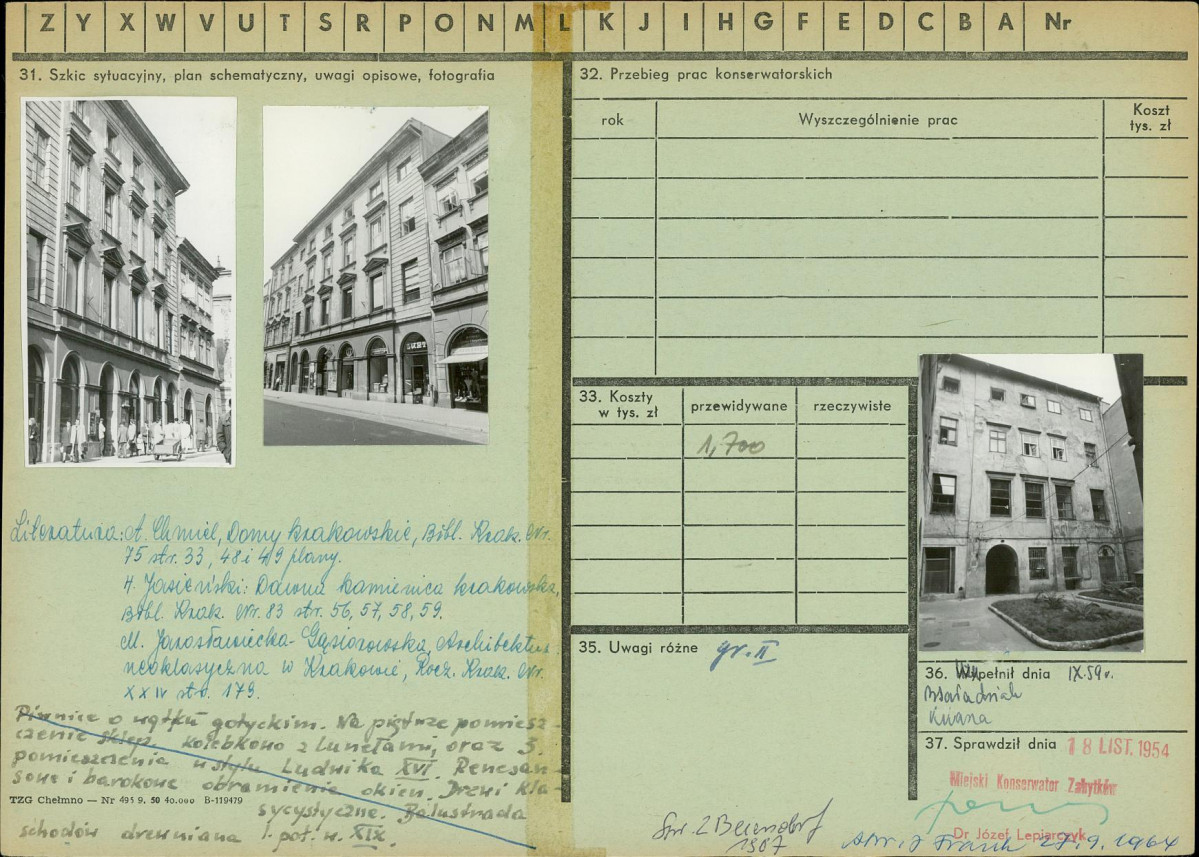 Z Y X W V U T S R P O N M L K J I H G F E D C B A Nr
31. Szkic sytuacyjny, plan schematyczny, uwagi opisowe, fotografia
Literatura: A. Chmiel, Domy krakowskie, Bibl. Krak. Nr.
75 str. 33, 48 i 49 plany.
H. Jasieński: Dawna kamienica krakowska,
Bibl. Krak. Nr. 83 str. 56, 57, 58, 59.
M. Jarosławiecka-Gąsiorowska, Architektura
neoklasyczna w Krakowie, Rocz. Krak. Nr.
XXIV str. 179.
Piwnice o wątku gotyckim. Na piętrze pomiesz-
czenie sklep. kolebkowo z lunetami, oraz 3.
pomieszczenia w stylu Ludwika XVI. Renesan-
sowe i barokowe obramienie okien. Drzwi kla-
sycystyczne. Balustrada
schodów drewniana I poł. w. XIX.
TZG Chełmno — Nr 495 9. 50 40.000 B-119479
32. Przebieg prac konserwatorskich
rok
Wyszczególnienie prac
Koszt
tys. zł
33. Koszty
w tys. zł
przewidywane
rzeczywiste
1,700
35. Uwagi różne gr. II
36. Wypełnił dnia IX.59 r.
37. Sprawdził dnia 18 LIST. 1954
Miejski Konserwator Zabytków
Dr Józef Lepiarczyk
27.9.1964